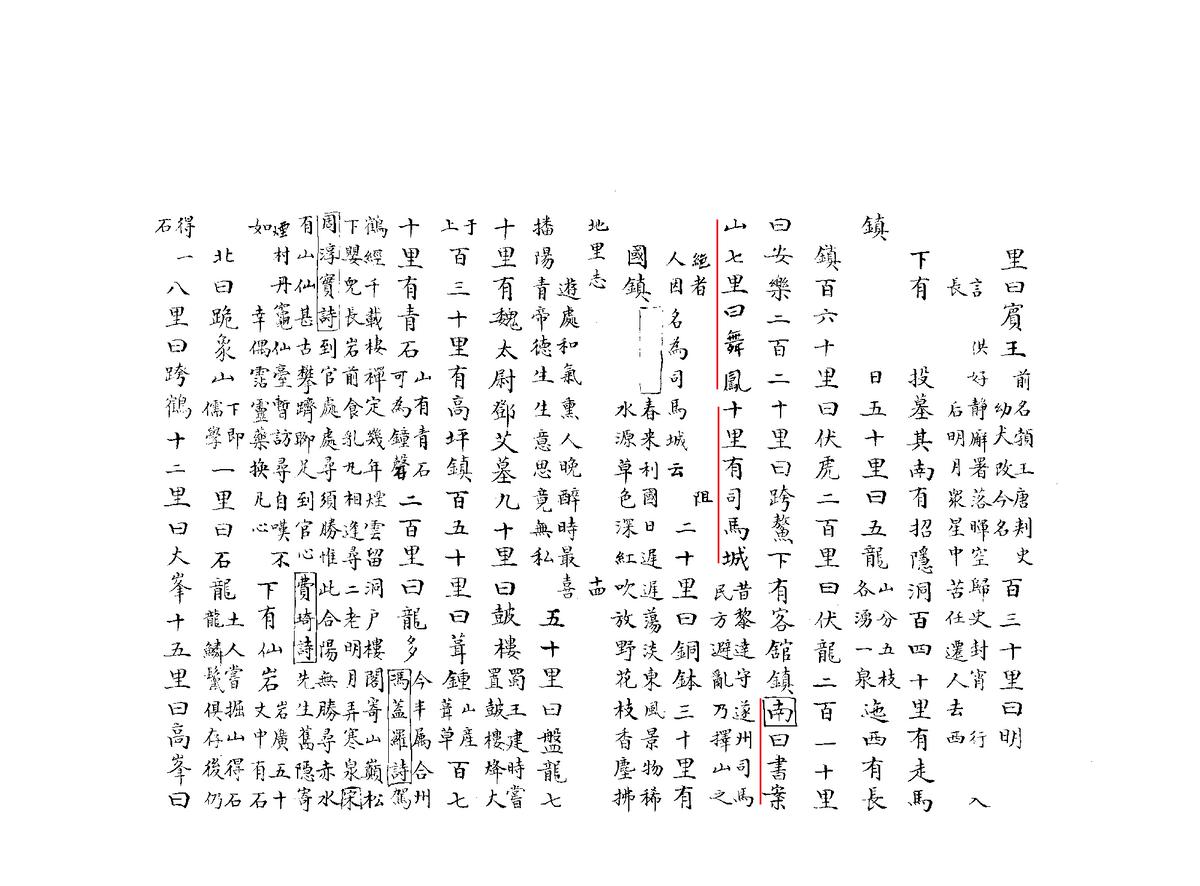 里曰賓王前名額王唐判史
幼犬改今名百三十里曰明
言洪好靜廨署落暉空歸史封宵行入
長后明月衆星中苦任還人去西
下有投墓其南有招隱洞百四十里有走馬
鎮日五十里曰五龍山分五枝
各湧一泉迤西有長
鎮百六十里曰伏虎二百里曰伏龍二百一十里
曰安樂二百二十里曰跨鰲下有客舘鎮南曰書案
山七里曰舞鳳十里有司馬城昔黎達守遂州司馬
民方避亂乃擇山之
絕者阻
人因名為司馬城云二十里曰銅鉢三十里有
國鎮春来利國日遲遲蕩淡東風景物稀
水源草色深紅吹放野花枝香塵拂
地里志 十四
遊處和氣熏人晚醉時最喜
播陽青帝德生生意思竟無私五十里曰盤龍七
十里有魏太尉鄧艾墓九十里曰鼓樓蜀王建時嘗
置鼓樓烽大
于
上百三十里有高坪鎮百五十里曰葺鍾山產
葺草百七
十里有青石山有青石
可為鐘磬二百里曰龍多今半屬合州
馮蓋羅詩駕
鶴經千載棲禪定幾年煙雲留洞戶樓閣寄山巔松
下嬰兒長岩前食乳九相逢尋二老明月弄寒泉宋
周淳寶詩到官處處尋須勝惟此合陽無勝尋赤水
有山仙甚古攀躋聊足到官心費埼詩先生舊隱寄
煙村丹竈仙臺暫訪尋自嘆不
如幸偶雲靈藥換凡心下有仙岩岩廣五十
丈中有石
北曰跪象山下即
儒學一里曰石龍土人嘗掘山得石
龍鱗鬣俱存後仍
得
石一八里曰跨鶴十二里曰大峯十五里曰高峯曰